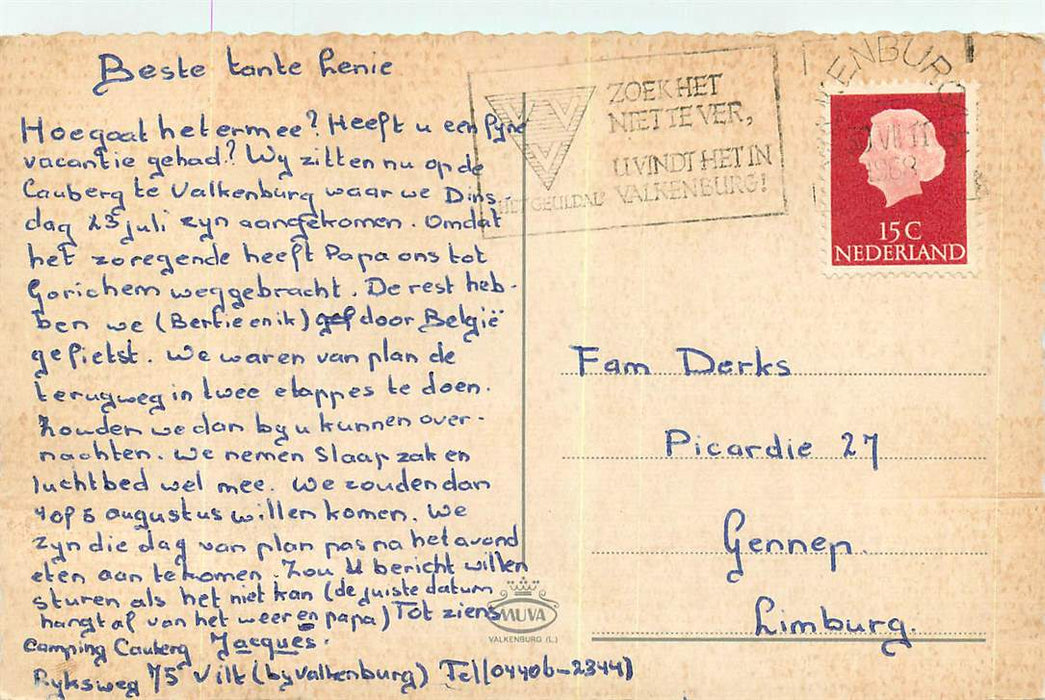 Beste tante henie
Hoe gaat het ermee? Heeft u een fyne
vacantie gehad? Wy zitten nu op de
Cauberg te Valkenburg waar we Dins
dag 23 juli zyn aangekomen. Omdat
het zo regende heeft Papa ons tot
Gorichem weggebracht. De rest heb-
ben we (Bertie en ik) door België
gefietst. We waren van plan de
terugweg in twee etappes te doen.
Zouden we dan by u kunnen over-
nachten. We nemen slaap zak en
luchtbed wel mee. We zouden dan
4 of 5 augustus willen komen. We
zyn die dag van plan pas na het avond
eten aan te komen. Zou U bericht willen
sturen als het niet kan (de juiste datum
hangt af van het weer en papa) Tot ziens
Jacques.
Camping Cauberg
Ryksweg 75 Vilt (by Valkenburg) Tel (04406-2344)
ZOEK HET
NIET TE VER,
U VINDT HET IN
"HET GEULDAL" VALKENBURG!
VALKENBURG
VII 11
1968
15C
NEDERLAND
Fam Derks
Picardie 27
Gennep.
Limburg.
MUVA
VALKENBURG (L.)